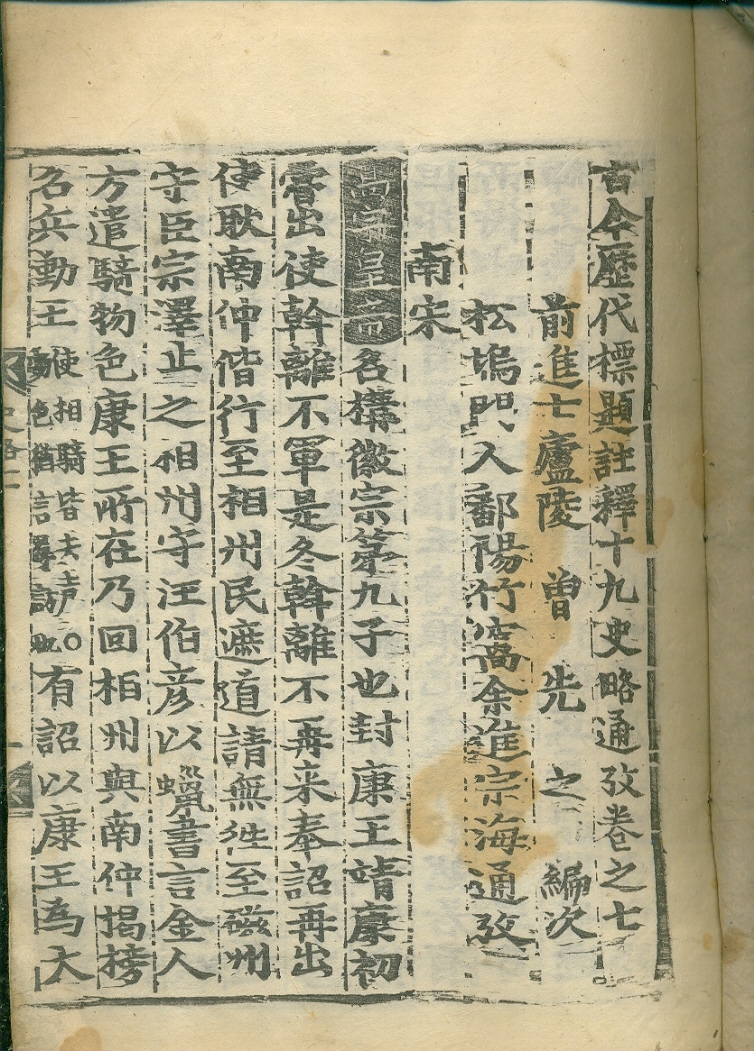 古今歷代標題註釋十九史略通攷卷之七
前進士廬陵 曾 先 之 編次
松塢門人鄱陽竹窩余進宗海通攷
南宋
高宗皇帝名構徽宗第九子也封康王靖康初
嘗出使斡離不軍是冬斡離不再来奉詔再出
使耿南仲偕行至相州民遮道請無徃至磁州
守臣宗澤止之相州守汪伯彦以蠟書言金人
方遣騎物色康王所在乃回相州與南仲揭榜
名兵勤王使相騎皆去声〇物色猶言尋訪也有詔以康王為大
史略